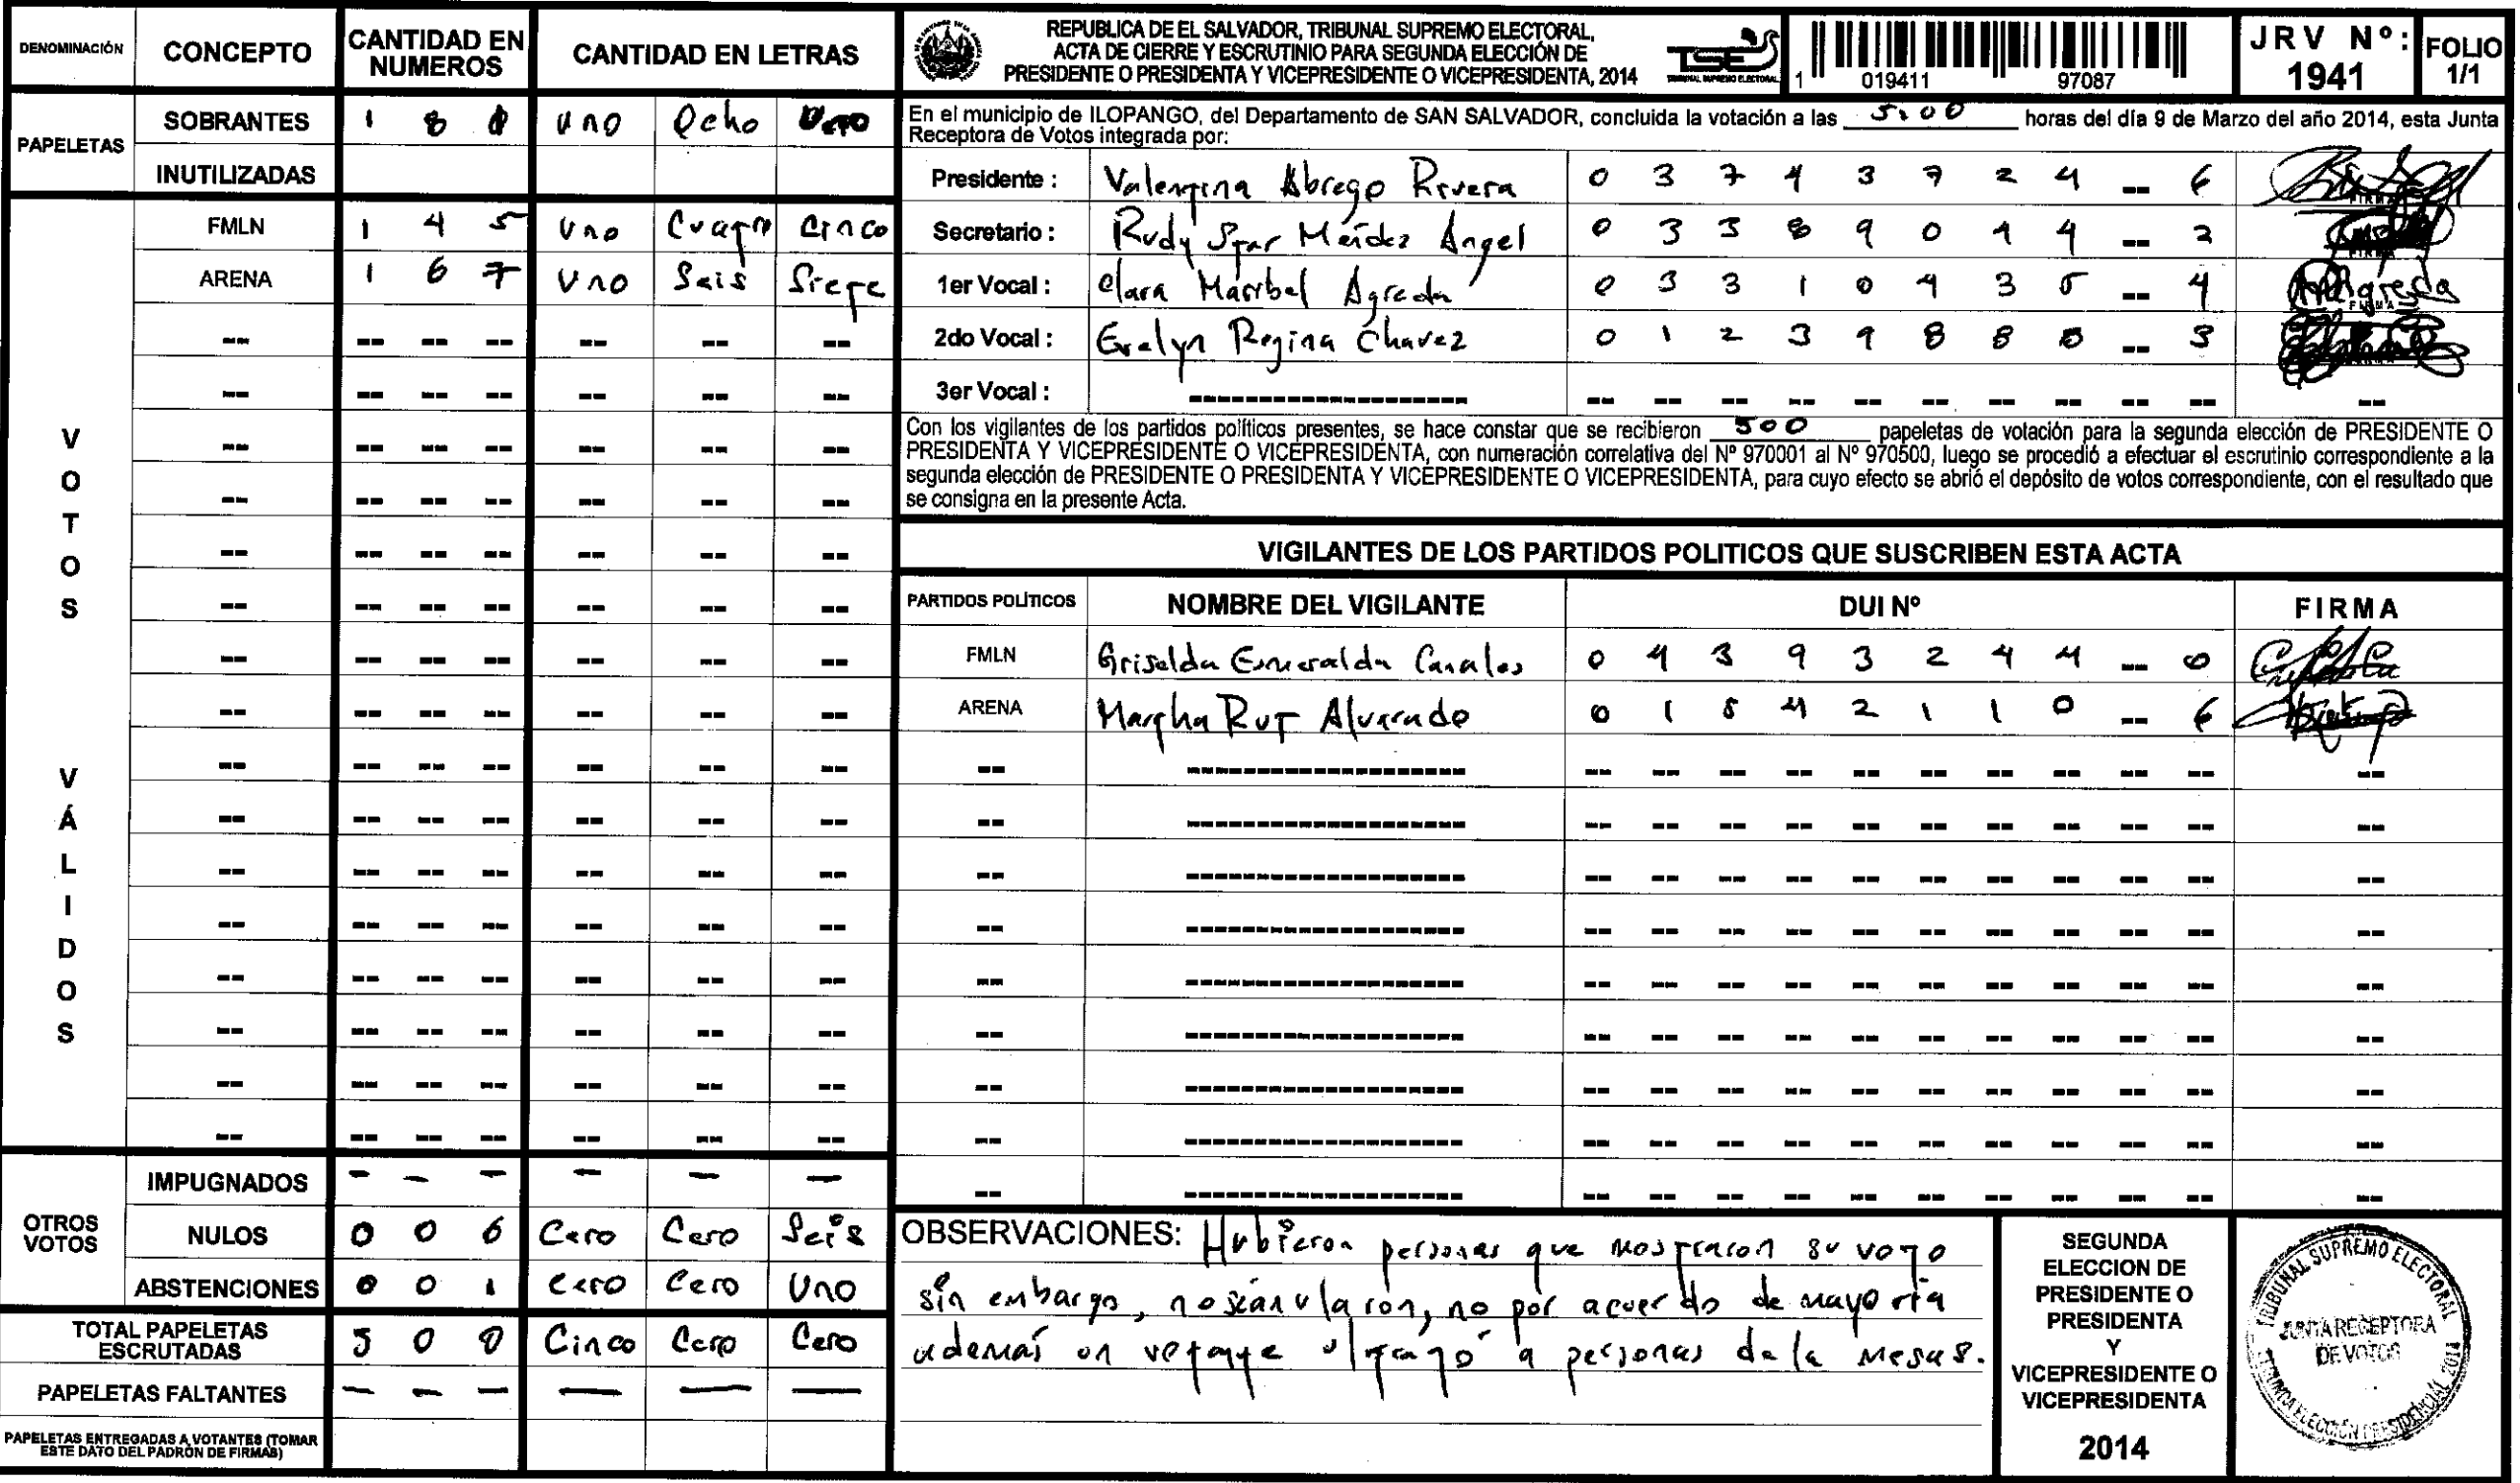 DENOMINACIÓN CONCEPTO CANTIDAD EN NUMEROS CANTIDAD EN LETRAS
PAPELETAS
SOBRANTES 1 8 uno Ocho
INUTILIZADAS
VOTOS VÁLIDOS
FMLN 1 4 5 Uno Cuatro Cinco
ARENA 1 6 7 Uno Seis Siete
OTROS VOTOS
IMPUGNADOS - - - - - -
NULOS 0 0 6 Cero Cero Seis
ABSTENCIONES 0 0 1 Cero Cero Uno
TOTAL PAPELETAS ESCRUTADAS 5 0 0 Cinco Cero Cero
PAPELETAS FALTANTES - - - - - -
PAPELETAS ENTREGADAS A VOTANTES (TOMAR
ESTE DATO DEL PADRÓN DE FIRMAS)
REPUBLICA DE EL SALVADOR, TRIBUNAL SUPREMO ELECTORAL,
ACTA DE CIERRE Y ESCRUTINIO PARA SEGUNDA ELECCIÓN DE
PRESIDENTE O PRESIDENTA Y VICEPRESIDENTE O VICEPRESIDENTA, 2014
TSE
TRIBUNAL SUPREMO ELECTORAL
1 019411 97087
JRV Nº: 1941
FOLIO 1/1
En el municipio de ILOPANGO, del Departamento de SAN SALVADOR, concluida la votación a las 5:00 horas del día 9 de Marzo del año 2014, esta Junta
Receptora de Votos integrada por:
Presidente : Valentina Abrego Rivera 0 3 7 4 3 7 2 4 -- 6
Secretario : Rudy Méndez Angel 0 3 3 8 9 0 4 4 -- 2
1er Vocal : Clara Maribel Agreda 0 3 3 1 0 4 3 5 -- 4
2do Vocal : Evelyn Regina Chavez 0 1 2 3 9 8 8 -- 3
3er Vocal :
FIRMA
Con los vigilantes de los partidos políticos presentes, se hace constar que se recibieron 500 papeletas de votación para la segunda elección de PRESIDENTE O
PRESIDENTA Y VICEPRESIDENTE O VICEPRESIDENTA, con numeración correlativa del Nº 970001 al Nº 970500, luego se procedió a efectuar el escrutinio correspondiente a la
segunda elección de PRESIDENTE O PRESIDENTA Y VICEPRESIDENTE O VICEPRESIDENTA, para cuyo efecto se abrió el depósito de votos correspondiente, con el resultado que
se consigna en la presente Acta.
VIGILANTES DE LOS PARTIDOS POLITICOS QUE SUSCRIBEN ESTA ACTA
PARTIDOS POLÍTICOS NOMBRE DEL VIGILANTE DUI Nº FIRMA
FMLN Griselda Esmeralda Canales 0 4 3 9 3 2 4 4 --
ARENA Martha Rut Alvarado 0 1 5 4 2 1 1 0 -- 6
OBSERVACIONES: Hubieron personas que mostraron su voto
sin embargo, no se anularon, no por acuerdo de mayoria
además un votante ultrajó a personas de la mesas.
SEGUNDA
ELECCION DE
PRESIDENTE O
PRESIDENTA
Y
VICEPRESIDENTE O
VICEPRESIDENTA
2014
TRIBUNAL SUPREMO ELECTORAL
JUNTA RECEPTORA
DE VOTOS
ELECCIÓN PRESIDENCIAL 2014